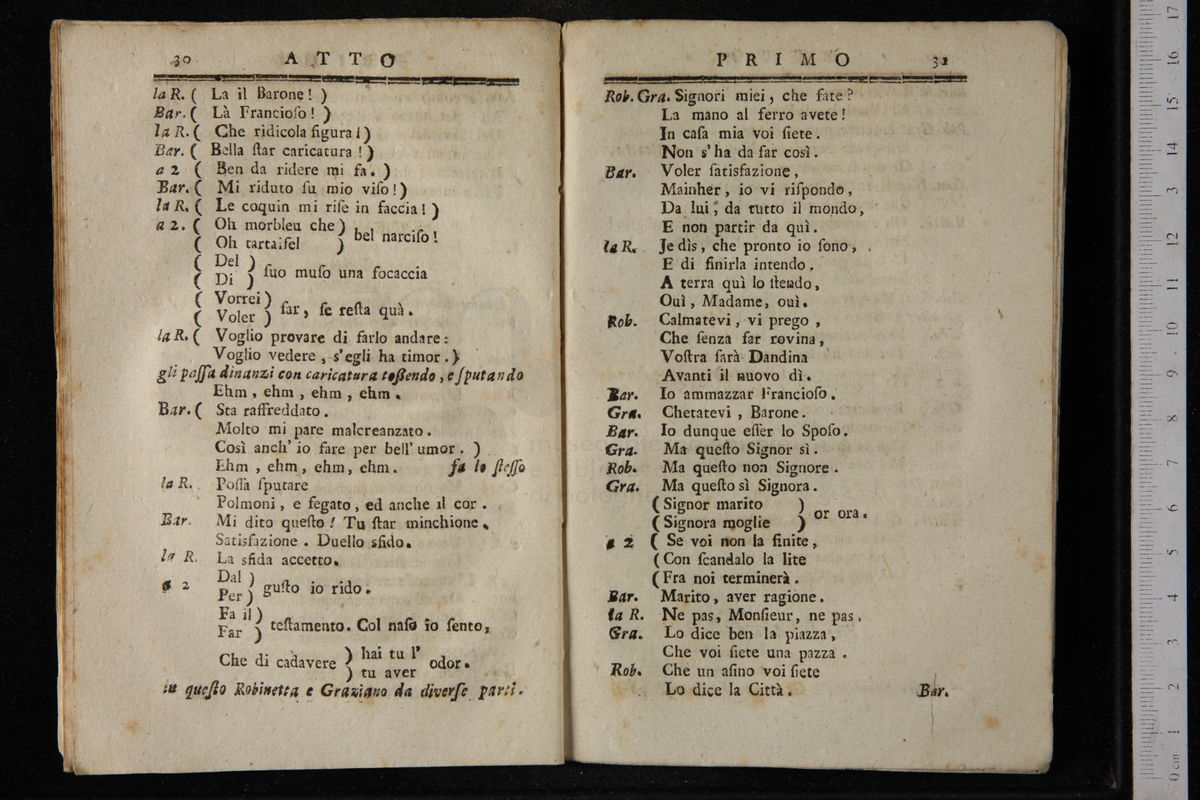 30 ATTO
la R. ( La il Barone! )
Bar. ( Là Francioſo! )
la R. ( Che ridicola figura! )
Bar. ( Bella ſtar caricatura! )
a 2 ( Ben da ridere mi fa. )
Bar. ( Mi riduto ſu mio viſo! )
la R. ( Le coquin mi riſe in faccia! )
a 2. ( Oh morbleu che ) bel narciſo!
( Oh tartaifel )
( Del ) ſuo muſo una focaccia
( Di )
( Vorrei ) far, ſe reſta quà.
( Voler )
la R. ( Voglio provare di farlo andare:
Voglio vedere, s'egli ha timor. )
gli paſſa dinanzi con caricatura toſſendo, e ſputando
Ehm, ehm, ehm, ehm.
Bar. ( Sta raffreddato.
Molto mi pare malcreanzato.
Così anch' io fare per bell' umor. )
Ehm, ehm, ehm, ehm. fa lo ſteſſo
la R. Poſſa ſputare
Polmoni, e fegato, ed anche il cor.
Bar. Mi dito queſto! Tu ſtar minchione.
Satisfazione. Duello sfido.
la R. La sfida accetto.
a 2 Dal ) guſto io rido.
Per )
Fa il ) teſtamento. Col naſo io ſento,
Far )
Che di cadavere ) hai tu l' odor.
) tu aver
in queſto Robinetta e Graziano da diverſe parti.
PRIMO 31
Rob. Gra. Signori miei, che fate?
La mano al ferro avete!
In caſa mia voi ſiete.
Non s' ha da far così.
Bar. Voler ſatisfazione,
Mainher, io vi riſpondo,
Da lui, da tutto il mondo,
E non partir da quì.
la R. Je dìs, che pronto io ſono,
E di finirla intendo.
A terra quì lo ſtendo,
Ouì, Madame, ouì.
Rob. Calmatevi, vi prego,
Che ſenza far rovina,
Voſtra ſarà Dandina
Avanti il nuovo dì.
Bar. Io ammazzar Francioſo.
Gra. Chetatevi, Barone.
Bar. Io dunque eſſer lo Spoſo.
Gra. Ma queſto Signor sì.
Rob. Ma queſto non Signore.
Gra. Ma queſto sì Signora.
( Signor marito ) or ora.
( Signora moglie )
a 2 ( Se voi non la finite,
( Con ſcandalo la lite
( Fra noi terminerà.
Bar. Marito, aver ragione.
la R. Ne pas, Monſieur, ne pas.
Gra. Lo dice ben la piazza,
Che voi ſiete una pazza.
Rob. Che un aſino voi ſiete
Lo dice la Città. Bar.